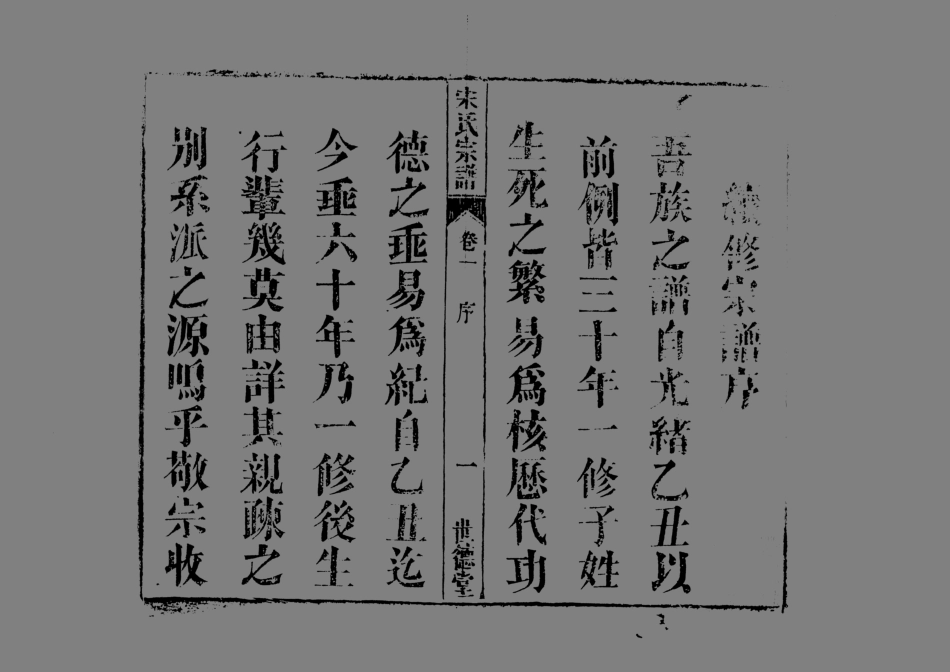 續修宗譜序
吾族之譜自光緒乙丑以
前例皆三十年一修子姓
生死之繁易爲核歷代功
宋氏宗譜 卷一 序 一 世德堂
德之乖易爲紀自乙丑迄
今乖六十年乃一修後生
行輩幾莫由詳其親疎之
別系派之源嗚乎敬宗收